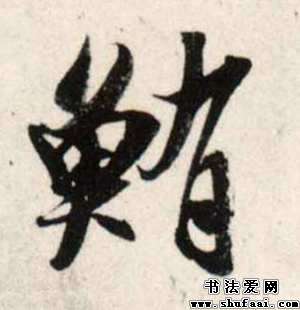 鮹
书法爱网
www.shufaai.com